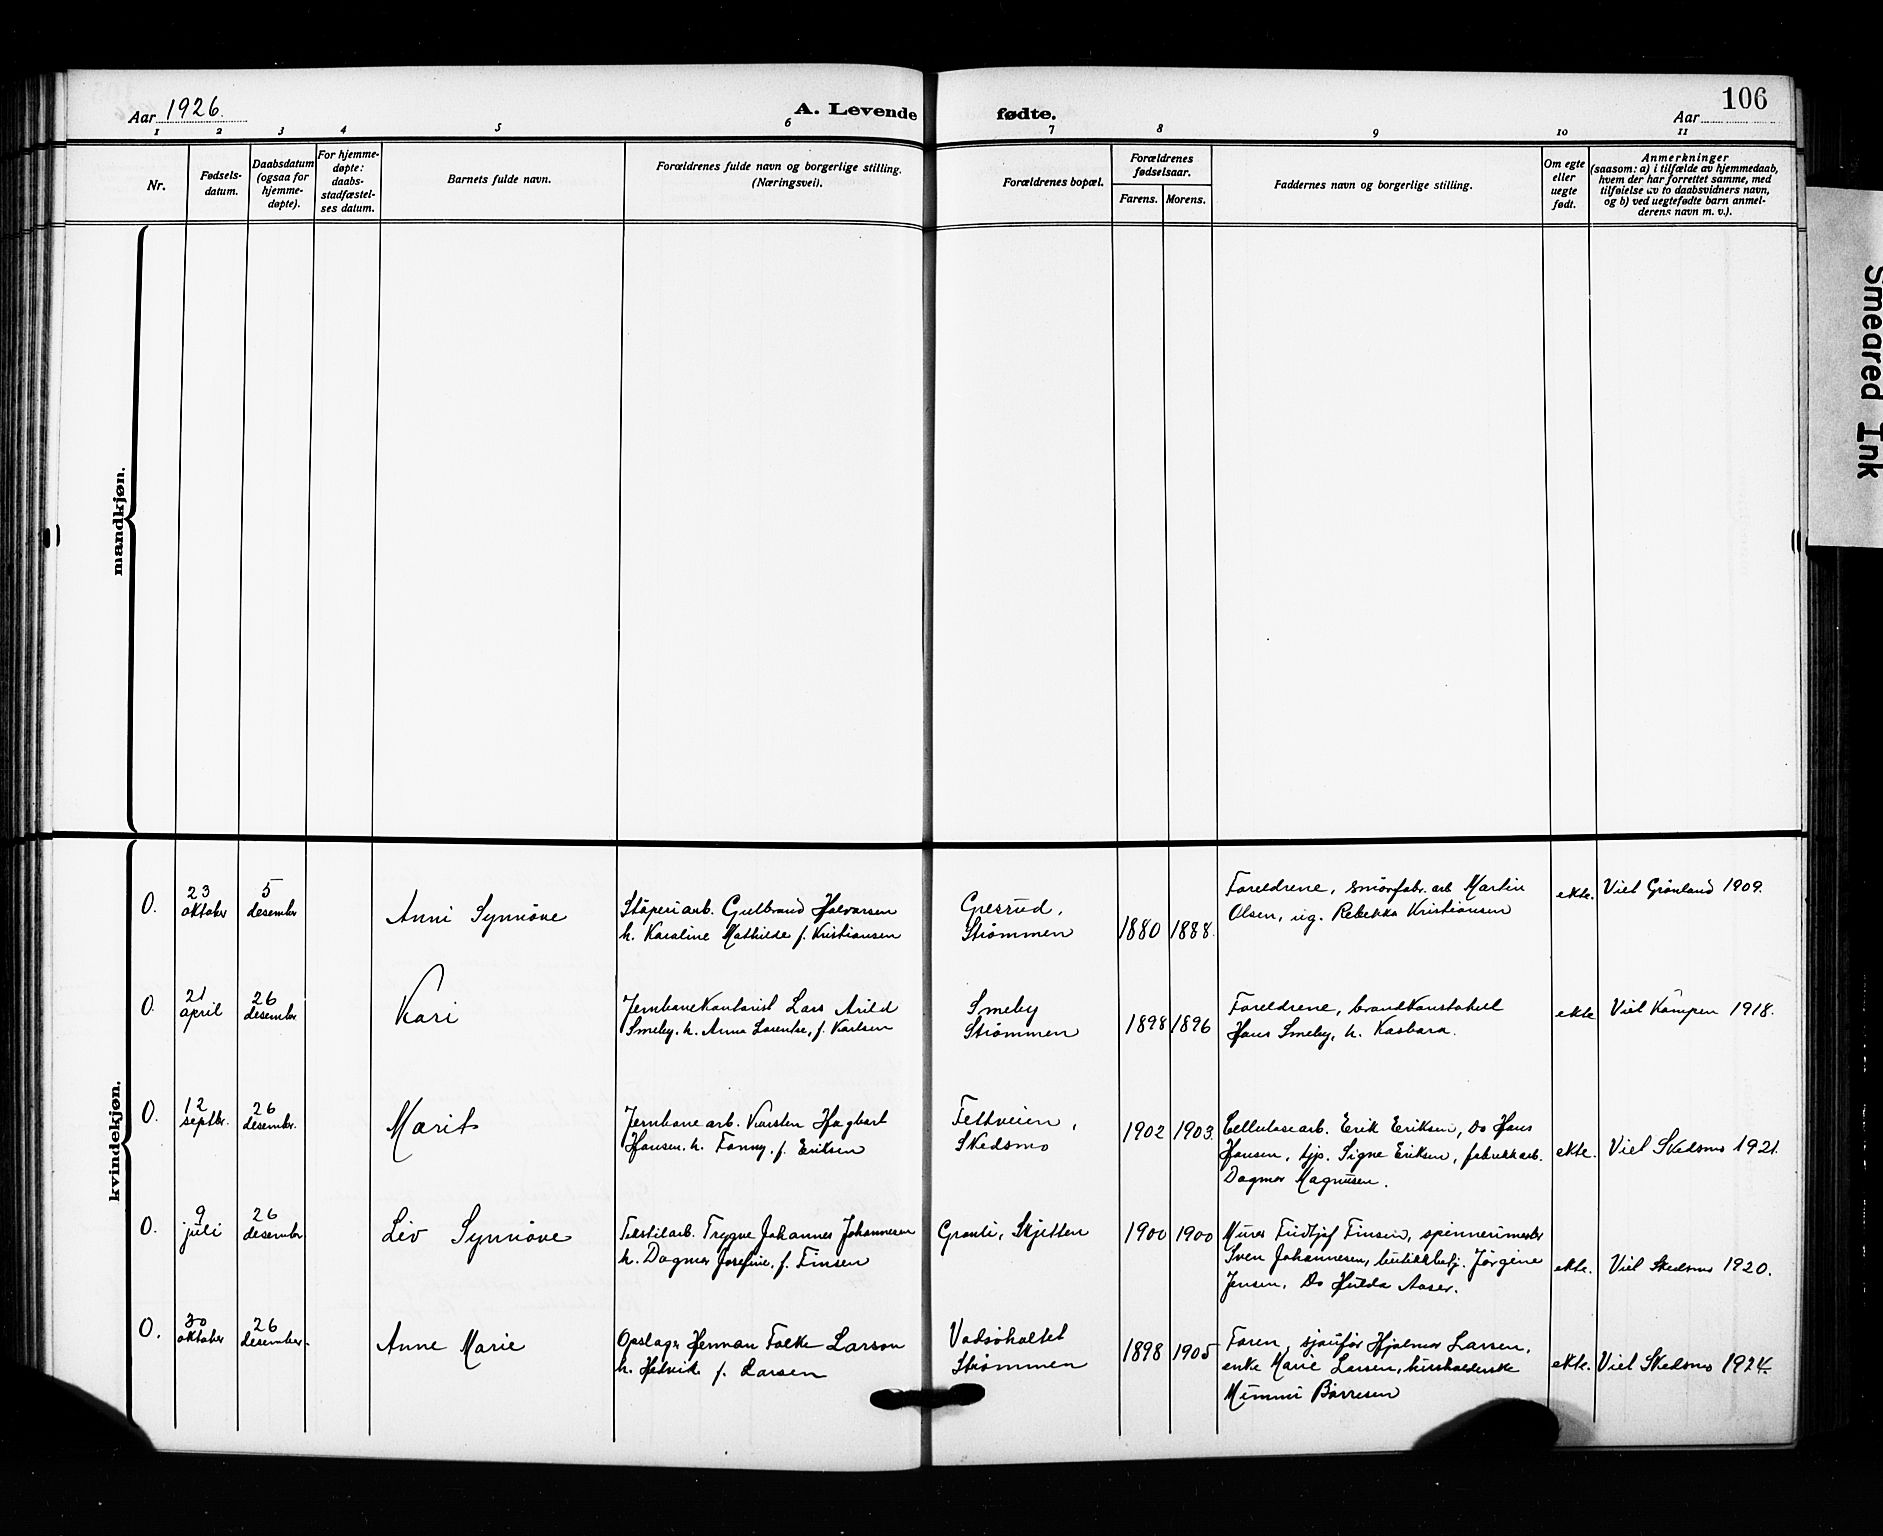 Aar 1926.
A. Levende fødte.
106
Aar
1 2 3 4 5 6 7 8 9 10 11
Nr.
Fødsels-
datum.
Daabsdatum
(ogsaa for
hjemme-
døpte).
For hjemme-
døpte:
daabs-
stadfæstel-
ses datum.
Barnets fulde navn.
Forældrenes fulde navn og borgerlige stilling.
(Næringsvei).
Forældrenes bopæl.
Forældrenes
fødselsaar.
Farens. Morens.
Faddernes navn og borgerlige stilling.
Om egte
eller
uegte
født.
Anmerkninger
(saasom: a) i tilfælde av hjemmedaab,
hvem der har forrettet samme, med
tilføielse av to daabsvidners navn,
og b) ved uegtefødte barn anmel-
derens navn m. v.).
mandkjøn.
kvindekjøn.
0.
23
oktober
5
desember
Anni Synnöve
Stöperiarb. Gulbrand Halvorsen
h. Karoline Mathilde f. Kristiansen
Gresrud,
Strømmen
1880 1888.
Foreldrene, smörfabr. arb Martin
Olsen, ug. Rebekka Kristiansen
ekte.
Viet Grönland 1909.
0.
21
april
26
desember
Kari
Jernbanekontorist Lars Arild
Smeby, h. Anna Laurentse, f. Karlsen
Smeby
Strømmen
1898 1896
Foreldrene, brandkonstabel
Hans Smeby, h. Kasbara.
ekte
Viet Kampen 1918.
0.
12
septbr.
26
desember.
Marit
Jernbanearb. Karsten Hagbart
Hansen, h. Fanny, f. Eriksen
Fettveien,
Skedsmo
1902 1903.
Cellulosearb. Erik Eriksen, do Hans
Hansen, tjp. Signe Eriksen, fabrikkarb.
Dagmar Magnusen.
ekte.
Viet Skedsmo 1921.
0.
9
juli
26
desember
Liv Synnöve
Tekstilarb. Trygve Johannes Johannesen
h. Dagmar Josefine, f. Finsen
Granli, Skjetten
1900 1900
Murer Fridtjof Finsen, spinnerimester
Sven Johannesen, butikkbetj. Jørgine
Jensen, do Hulda Aaser.
ekte.
Viet Skedsmo 1920.
0.
30
oktober
26
desember.
Anne Marie
Opslager Herman Falke Larson
h. Hedvik f. Larsen
Strømmen
1898 1905
Faren, sjauför Hjalmar Larsen,
enke Marie Larsen, husholderske
Mimmi Börresen
ekte.
Viet Skedsmo 1924.
Smeared Ink